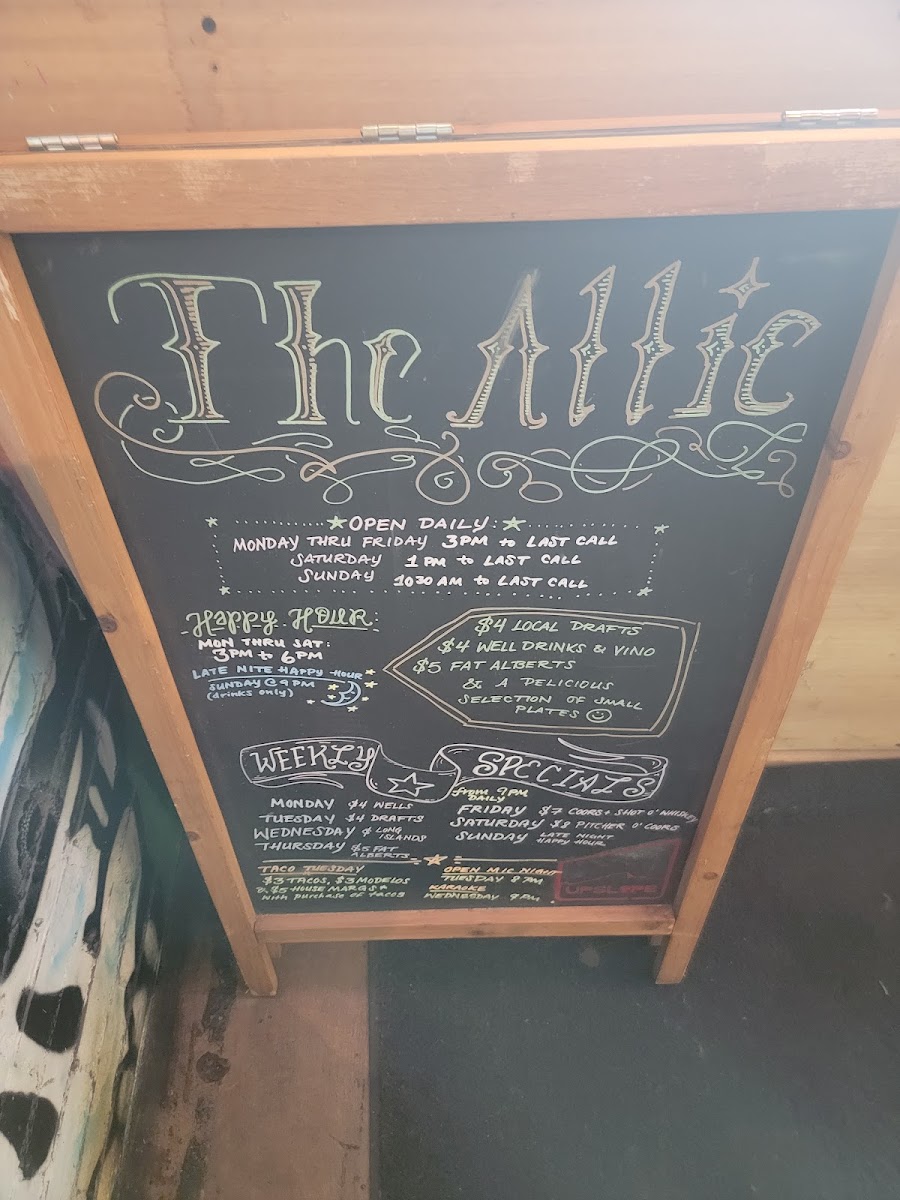 The Attic
OPEN DAILY:
MONDAY THRU FRIDAY 3PM to LAST CALL
SATURDAY 1 PM to LAST CALL
SUNDAY 1030 AM to LAST CALL
Happy Hour:
MON THRU SAT:
3PM to 6PM
LATE NITE HAPPY HOUR
SUNDAY @ 9 PM
(drinks only)
$4 LOCAL DRAFTS
$4 WELL DRINKS & VINO
$5 FAT ALBERTS
& A DELICIOUS
SELECTION OF SMALL
PLATES
WEEKLY SPECIALS
from 9PM
DAILY
MONDAY $4 WELLS
TUESDAY $4 DRAFTS
WEDNESDAY $ LONG
ISLANDS
THURSDAY $5 FAT
ALBERTS
FRIDAY $7 COORS + SHOT O' WHISKEY
SATURDAY $8 PITCHER O' COORS
SUNDAY LATE NIGHT
HAPPY HOUR
TACO TUESDAY
$3 TACOS, $3 MODELOS
& $5 HOUSE MARGS*
with purchase of tacos
OPEN MIC NIGHT
TUESDAY 8 PM
KARAOKE
WEDNESDAY 9PM
UPSLOPE